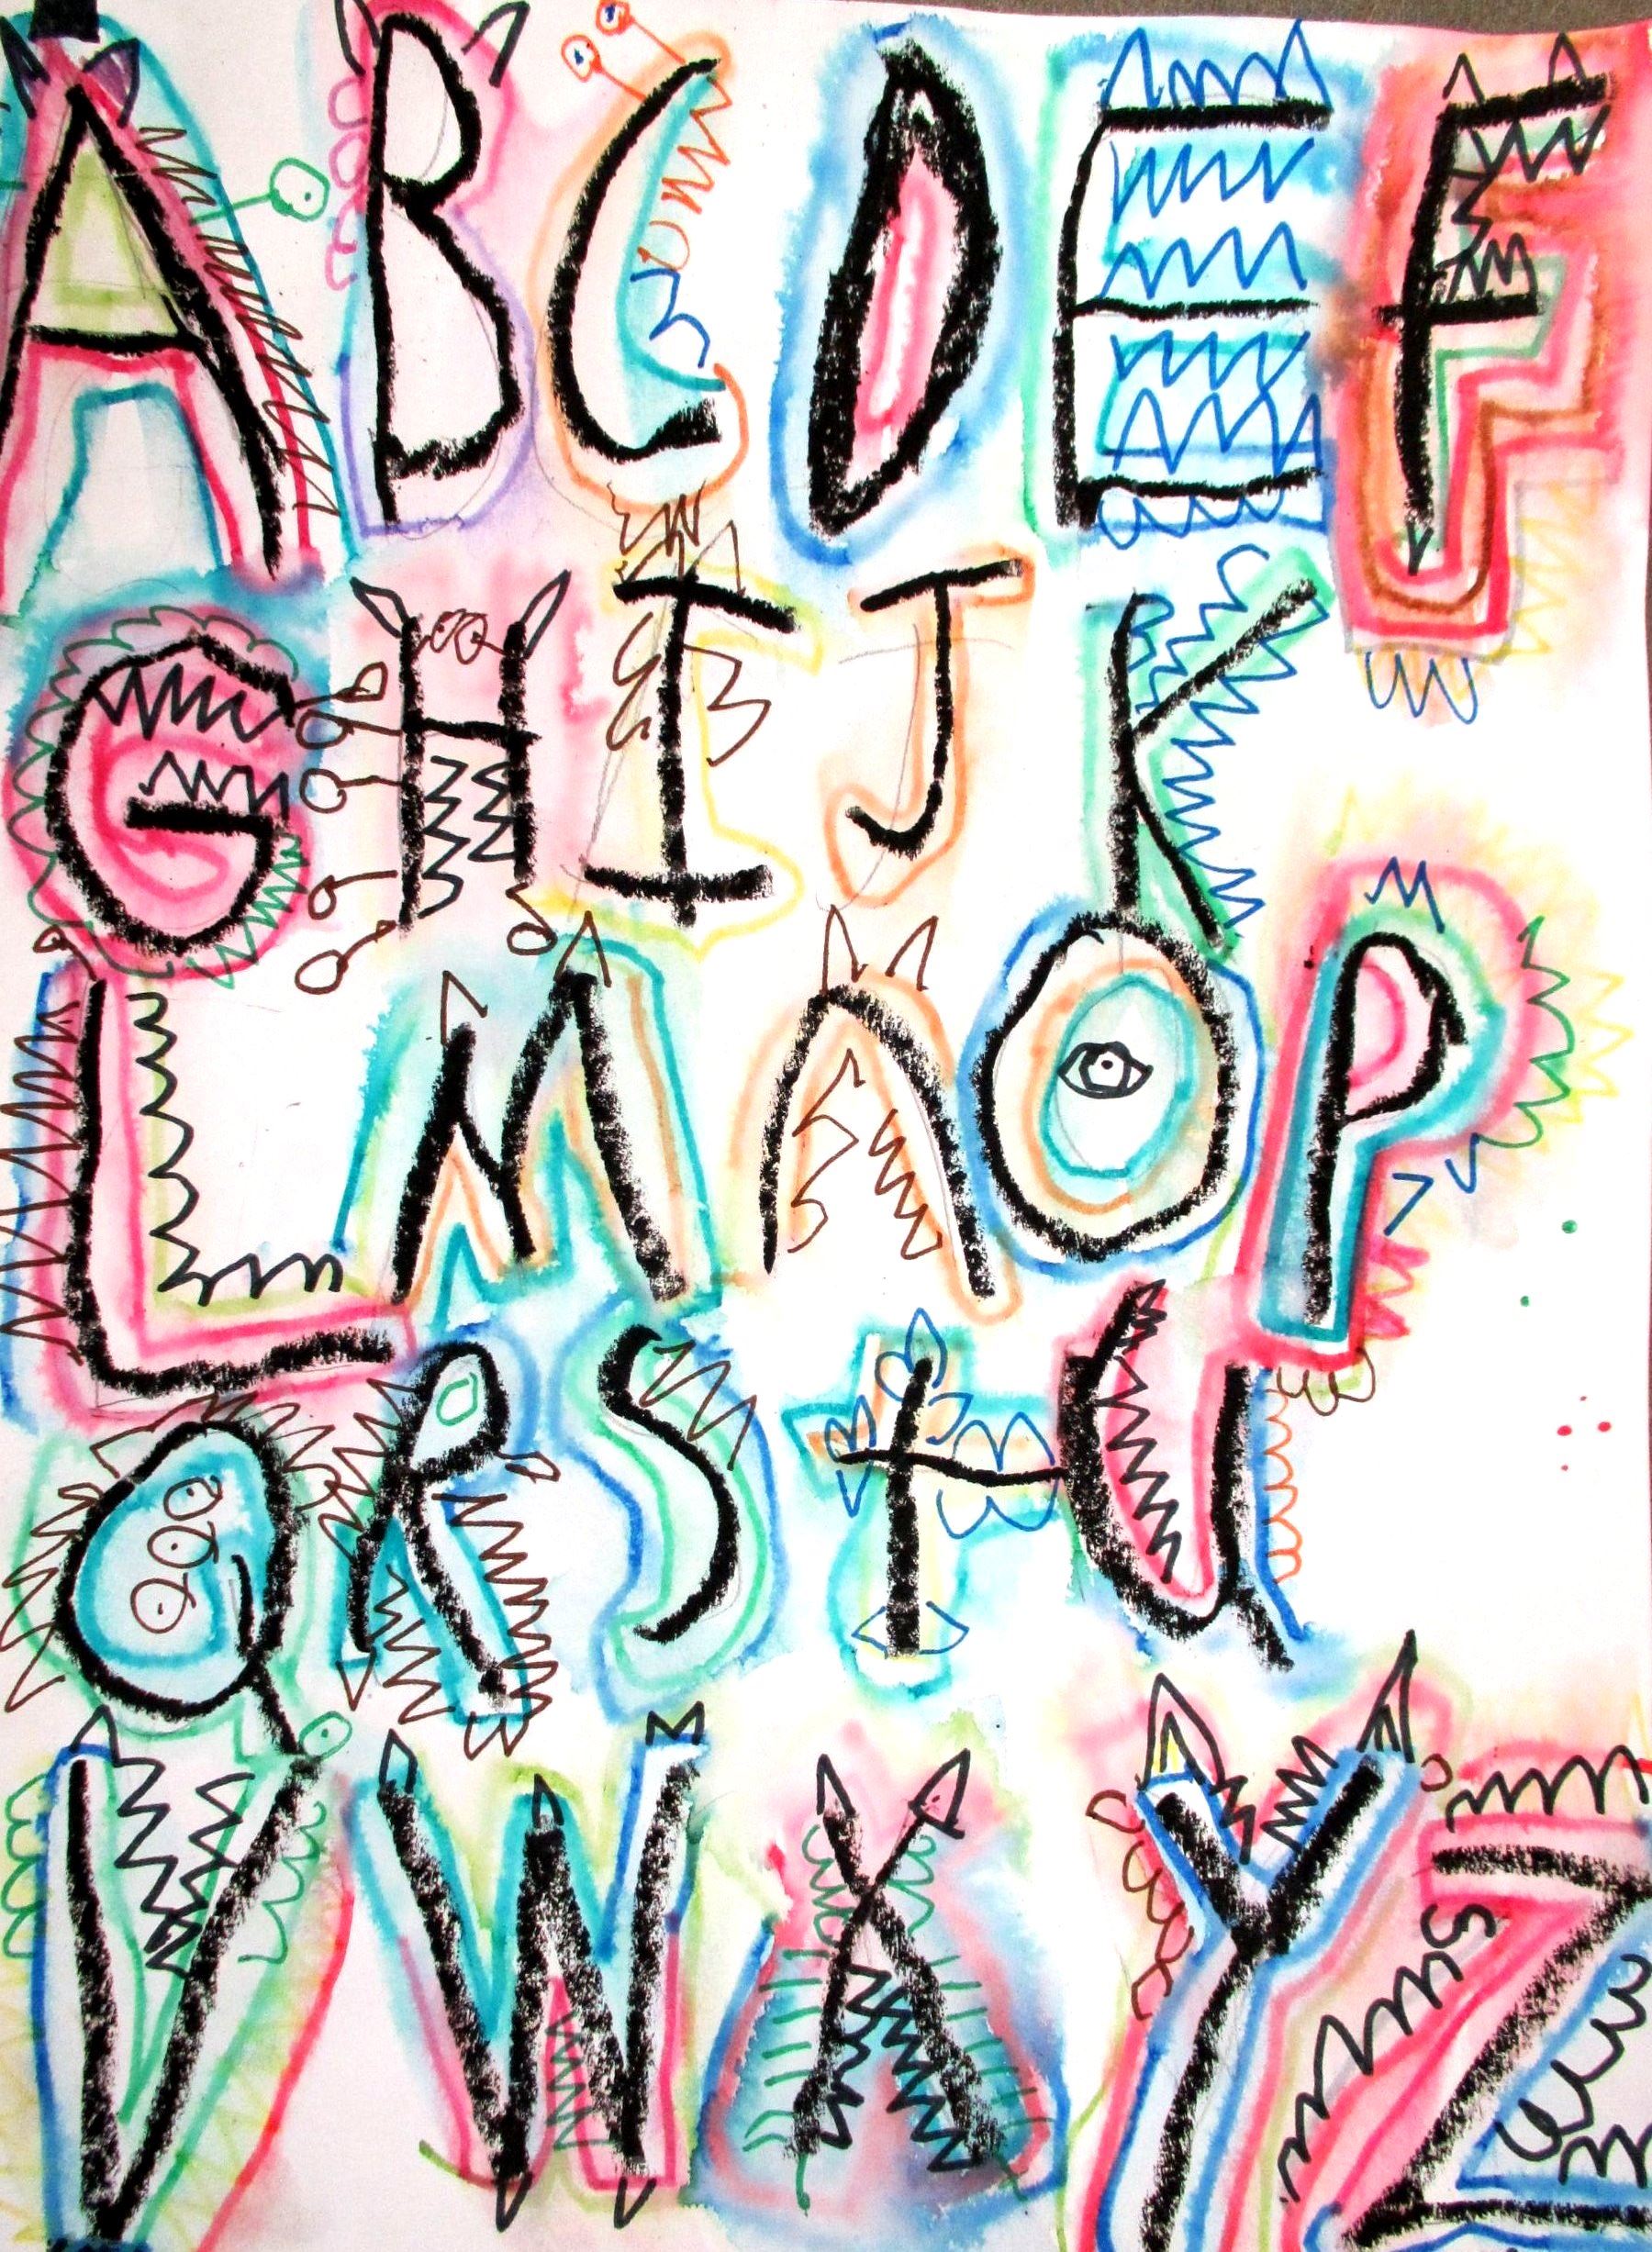 ABCDEF
GHIJK
LMNOP
QRSTU
VWXYZ